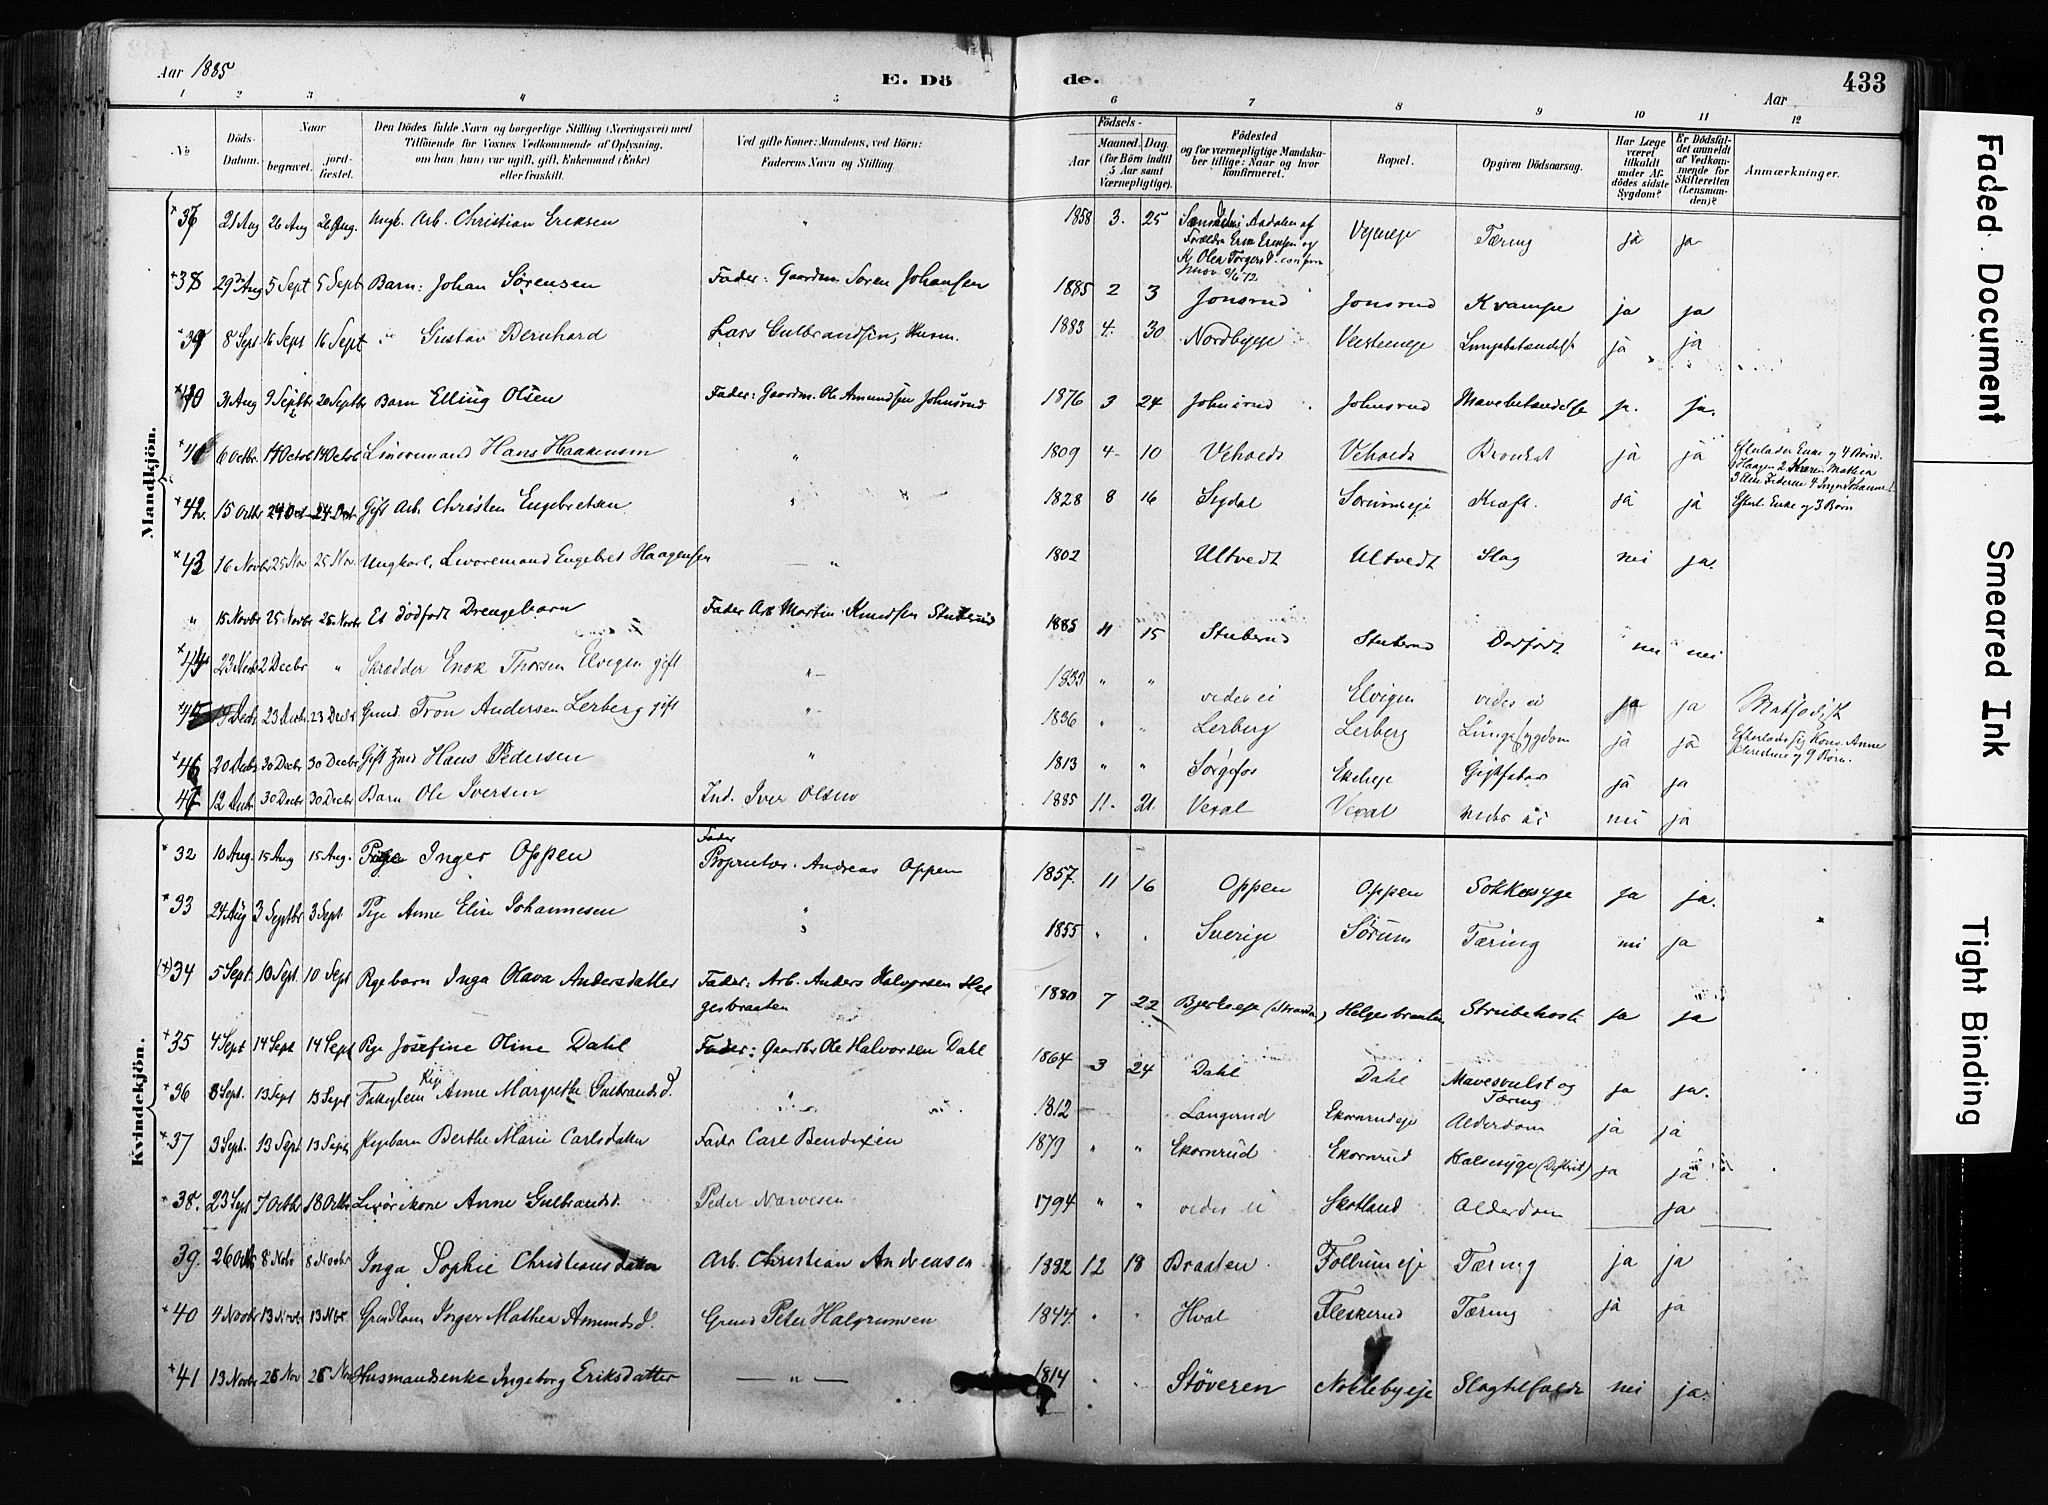 Aar 1885
E. Dö
de.
433
Aar
1 2 3 4 5 6 7 8 9 10 11 12
No
Döds-Datum.
Naar
begravet.
jordfæstet.
Den Dödes fulde Navn og borgerlige Stilling (Næringsvei) med
Tilföiende for Voxnes Vedkommende af Oplysning,
om han (hun) var ugift, gift, Enkemand (Enke)
eller fraskilt.
Ved gifte Koner: Mandens, ved Börn:
Faderens Navn og Stilling.
Födsels-
Aar
Maaned. Dag.
(for Börn indtil
5 Aar samt
Værnepligtige).
Födested
og for værnepligtige Mandskaber tillige: Naar og hvor
konfirmeret.
Bopæl.
Opgiven Dödsaarsag.
Har Læge
været
tilkaldt
under Afdödes sidste
Sygdom?
Er Dödsfaldet anmeldt
af Vedkommende for
Skifteretten
(Lensmanden)?
Anmærkninger.
Mandkjön.
+37 21 Aug 26 Aug 26 Aug. Ungk. Arb. Christian Eriksen " 1858 3. 25 Aadalen af Forældre Erik Eriksen og Olea Torgersd. Vejeneje Tæring ja ja
+38 29 Aug 5 Sept 5 Sept Barn: Johan Sørensen Fader: Gaardm Søren Johansen 1885 2 3 Jonsrud Jonsrud Krampe ja ja
+39 8 Sept 16 Sept 16 Sept " Gustav Bernhard Lars Gulbrandsen, Husm. 1883 4. 30 Nordbyeje Lungebetændelse ja ja
+40 31 Aug 9 Septbr 20 Septbr Barn Elling Olsen Fader: Gaardm. Ole Amundsen Johnsrud 1876 3 24 Johnsrud Johnsrud Mavebetændelse ja. ja.
+41 6 Octbr 14 Octob 14 Octob Hans Haakensen " 1809 4 10 Veholdt Veholdt ja ja Efterlader Enke og 4 Børn.
+42. 15 Octbr 24 Oct 24 Oct Gift Arb. Christen Engebretsen " 1828 8 16 Sigdal Sørumseje Kræft. ja ja Efterl. Enke og 3 Børn
+43 16 Novbr 25 Nov 25 Nov. Ungkarl, Livøremand Engebret Haagensen " 1802 Ultvedt Ultvedt Slag nei ja.
" 15 Novbr 25 Novbr 25 Novbr Et dødfødt Drengebarn Fader Arb Martin Knudsen Stuberud 1885 11 15 Stuberud Stuberud Dødfødt nei nei
+44 23 Novbr 2 Decbr " Skrædder Enok Thorsen Elvigen gift " 1833 " " vides ei Elvigen vides ei ja ja
+45 14 Decbr 23 Decbr 23 Decbr Gaard. Tron Andersen Lerberg gift " 1836 " " Lerberg Lerberg Lungesygdom ja ja
+46 20 Decbr 30 Decbr 30 Decbr Gift Hans Pedersen " 1813 " " Sørgefos Ekeleje Gigtfeber ja ja
47 12 Decbr 30 Decbr 30 Decbr Barn Ole Iversen Ind. Iver Olsen 1885 11. 21. Vexal Vexal vides ei nei ja
Kvindekjön.
+32 10 Aug. 15 Aug 15 Aug. Pige Inger Oppen Fader Proprietær. Andreas Oppen 1857. 11 16 Oppen Oppen Sokkersyge ja ja.
+33 24 Aug 3 Septbr 3 Sept Pige Anne Elise Johannesen " 1855 " " Sverige Sørum Tæring nei ja
(+)34 5 Sept. 10 Sept. 10 Sept Pigebarn Inga Olava Andersdatter Fader: Arb. Anders Halvorsen Helgesbraaten 1880 7 22 Bjerkeeje (Stranda) Helgesbraaten Strubehoste ja ja
+35 4 Sept 14 Sept 14 Sept Pige Josefine Oline Dahl Fader: Gaardbr Ole Halvorsen Dahl 1864 3 24 Dahl Dahl Mavesvulst og Tæring ja ja.
+36 8 Sept. 13 Sept 13 Sept Fattiglem Pige Anne Margrethe Gulbrandsd. " 1812 Langerud Ekornrudeje Alderdom ja ja
+37 3 Sept. 13 Sept 13 Sept Pigebarn Berthe Marie Carlsdatter Fader Carl Bendixen 1879 " " Ekornrud Ekornrud Halsesyge (Difterit) ja ja
+38. 23 Sept 7 Octbr 18 Octbr Livørikone Anne Gulbrandsd. Peder Narvesen 1794 " " vides ei Skotland Alderdom ja.
39. 26 Octb 8 Nov 8 Novbr Inga Sophie Christiansdatter Arb. Christian Andreasen 1882 12 18 Braaten Follumeje Tæring ja ja
+40 4 Novbr 13 Novbr 13 Nvbr Inger Mathea Amundsd. Peter Halgrimsen 1844 " " Hval Fleskerud Tæring ja ja
+41 13 Novbr 26 Nov 26 Nov Husmandsenke Ingeborg Eriksdatter " 1814 " " Støveren Nokkebyeje Slagtilfælde nei ja.
Faded Document
Smeared Ink
Tight Binding